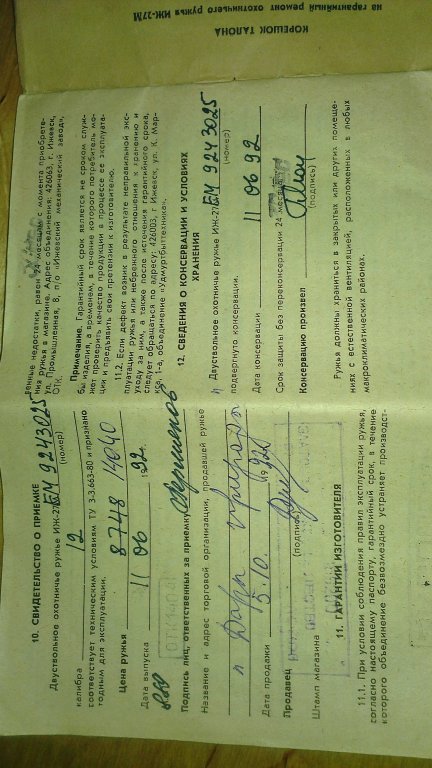 10. СВИДЕТЕЛЬСТВО О ПРИЕМКЕ
Двуствольное охотничье ружье ИЖ-27ЕМ 9243025
(номер)
калибра 12
соответствует техническим условиям ТУ 3-3.663-80 и признано
годным для эксплуатации.
Цена ружья 8748 14040
Дата выпуска 11 06 1992 г.
Подпись лиц, ответственных за приемку
Название и адрес торговой организации, продавшей ружье
п Дары природы
Дата продажи 5.10. 1992 г.
Продавец
(подпись)
Штамп магазина
11. ГАРАНТИИ ИЗГОТОВИТЕЛЯ
11.1. При условии соблюдения правил эксплуатации ружья,
согласно настоящему паспорту, гарантийный срок, в течение
которого объединение безвозмездно устраняет производст-
венные недостатки, равен 24 месяцам с момента приобрете-
ния ружья в магазине. Адрес объединения: 426063, г. Ижевск,
ул. Промышленная, 8, п/о «Ижевский механический завод»,
ОТК.
Примечание. Гарантийный срок является не сроком служ-
бы изделия, а временем, в течение которого потребитель мо-
жет проверить качество продукции в процессе ее эксплуата-
ции и предъявить свои претензии к изготовителю.
11.2. Если дефект возник в результате неправильной экс-
плуатации ружья или небрежного отношения к хранению и
уходу за ним, а также после истечения гарантийного срока,
следует обращаться по адресу: 426003, г. Ижевск, ул. К. Мар-
кса, 1-а, объединение «Удмуртбыттехника».
12. СВЕДЕНИЯ О КОНСЕРВАЦИИ И УСЛОВИЯХ
ХРАНЕНИЯ
Двуствольное охотничье ружье ИЖ-27ЕМ 9243025
(номер)
подвергнуто консервации.
Дата консервации 11 06 92
Срок защиты без переконсервации 24 месяца
Консервацию произвел
(подпись)
Ружья должны храниться в закрытых или других помеще-
ниях с естественной вентиляцией, расположенных в любых
макроклиматических районах.
КОРЕШОК ТАЛОНА
на гарантийный ремонт охотничьего ружья ИЖ-27М